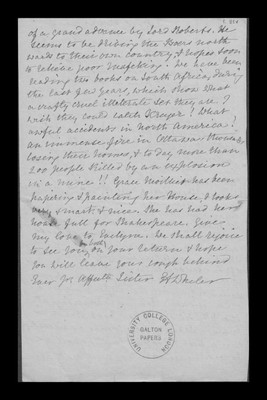 of a grand advance by Lord Roberts. He
seems to be driving the Boers north-
wards to their own country, & hopes soon
to relieve poor Mafeking. We have been
reading the books on South Africa, during
the last few years, which show what
a crafty cruel illiterate set they are. I
wish they could catch Kruger! What
awful accidents in North America!
an immense fire in Ottawa thousands
losing their homes, & to day more than
200 people killed by an explosion
in a mine!! Grace has been
papering & painting her House, & looks
very smart & nice. She has had her
house full for Shakespeare. Give
my love to Evelyne. We shall rejoice
to see you both on your return & hope
you will leave your cough behind
Ever yr affecte Sister E Wheler
UNIVERSITY COLLEGE LONDON
GALTON
PAPERS